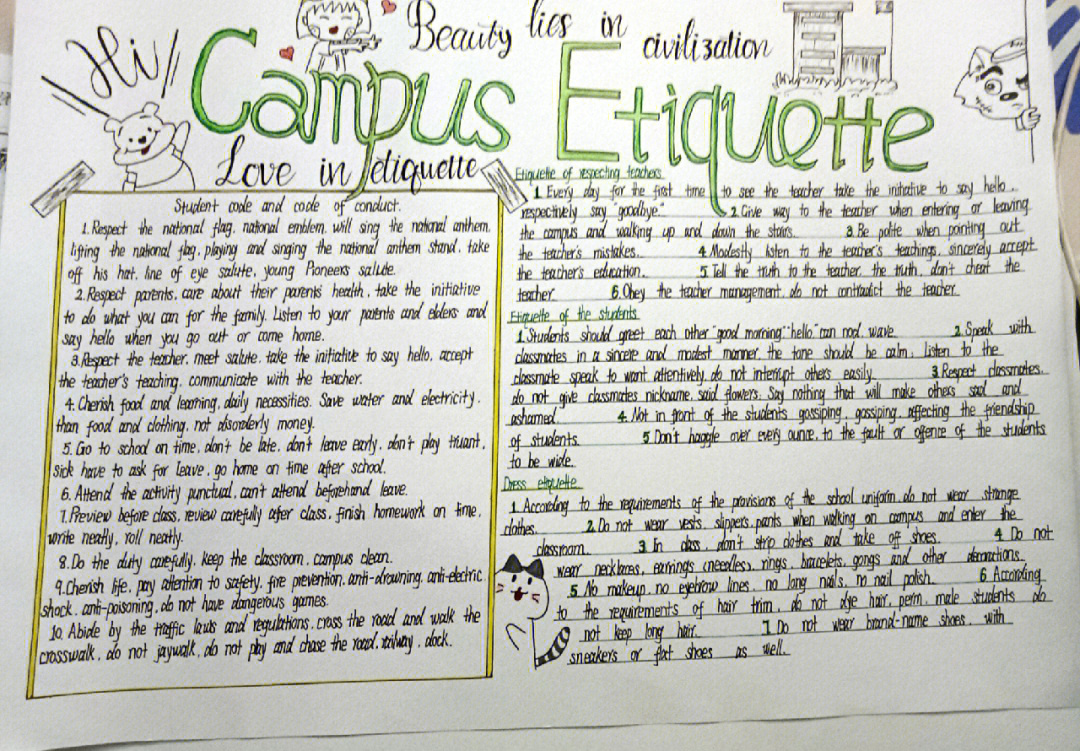 Hi
Beauty lies in civilization
Campus Etiquette
Love in etiquette
Student code and code of conduct.
1.Respect the national flag, national emblem, will sing the national anthem,
lifting the national flag, playing and singing the national anthem stand, take
off his hat, line of eye salute, young Pioneers salute.
2.Respect parents, care about their parents health, take the initiative
to do what you can for the family. Listen to your parents and elders and
say hello when you go out or come home.
3.Respect the teacher, meet salute, take the initiative to say hello, accept
the teacher's teaching, communicate with the teacher.
4. Cherish food and learning, daily necessities. Save water and electricity,
than food and clothing, not disorderly money.
5. Go to school on time, don't be late, don't leave early, don't play truant,
sick have to ask for leave, go home on time after school.
6. Attend the activity punctual, can't attend beforehand leave.
7.Preview before class, review carefully after class, finish homework on time,
write neatly, roll neatly.
8. Do the duty carefully, keep the classroom, campus clean.
9.Cherish life, pay attention to safety, fire prevention, anti-drowning, anti-electric
shock, anti-poisoning, do not have dangerous games.
10. Abide by the traffic laws and regulations, cross the road and walk the
crosswalk, do not jaywalk, do not play and chase the road, railway, dock.
Etiquette of respecting teachers
1. Every day for the first time to see the teacher take the initiative to say hello,
respectively say "goodbye." 2.Give way to the teacher when entering or leaving
the campus and walking up and down the stairs. 3.Be polite when pointing out
the teacher's mistakes. 4.Modestly listen to the teacher's teachings, sincerely accept
the teacher's education. 5.Tell the truth to the teacher, the truth, don't cheat the
teacher. 6.Obey the teacher management, do not contradict the teacher.
Etiquette of the students
1.Students should greet each other "good morning" "hello" can nod, wave. 2.Speak with
classmates in a sincere and modest manner, the tone should be calm, listen to the
classmate speak to want attentively, do not interrupt others easily. 3.Respect classmates,
do not give classmates nickname, said flowers, Say nothing that will make others sad and
ashamed. 4.Not in front of the students gossiping, gossiping, affecting the friendship
of students. 5 Don't haggle over every ounce, to the fault or offence of the students
to be wide.
Dress etiquette
1. According to the requirements of the provisions of the school uniform, do not wear strange
clothes. 2. Do not wear vests, slippers, pants when walking on campus and enter the
classroom. 3 In class, don't strip clothes and take off shoes. 4 Do not
wear necklaces, earrings (needles), rings, bracelets, gongs and other decorations.
5. No makeup, no eyebrow lines, no long nails, no nail polish. 6 According
to the requirements of hair trim, do not dye hair, perm, male students do
not keep long hair. 7. Do not wear brand-name shoes, with
sneakers or flat shoes as well.